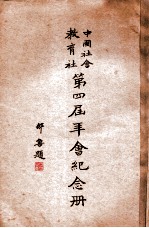 中國社會
教育社
第四屆年會紀念冊
鄒魯題